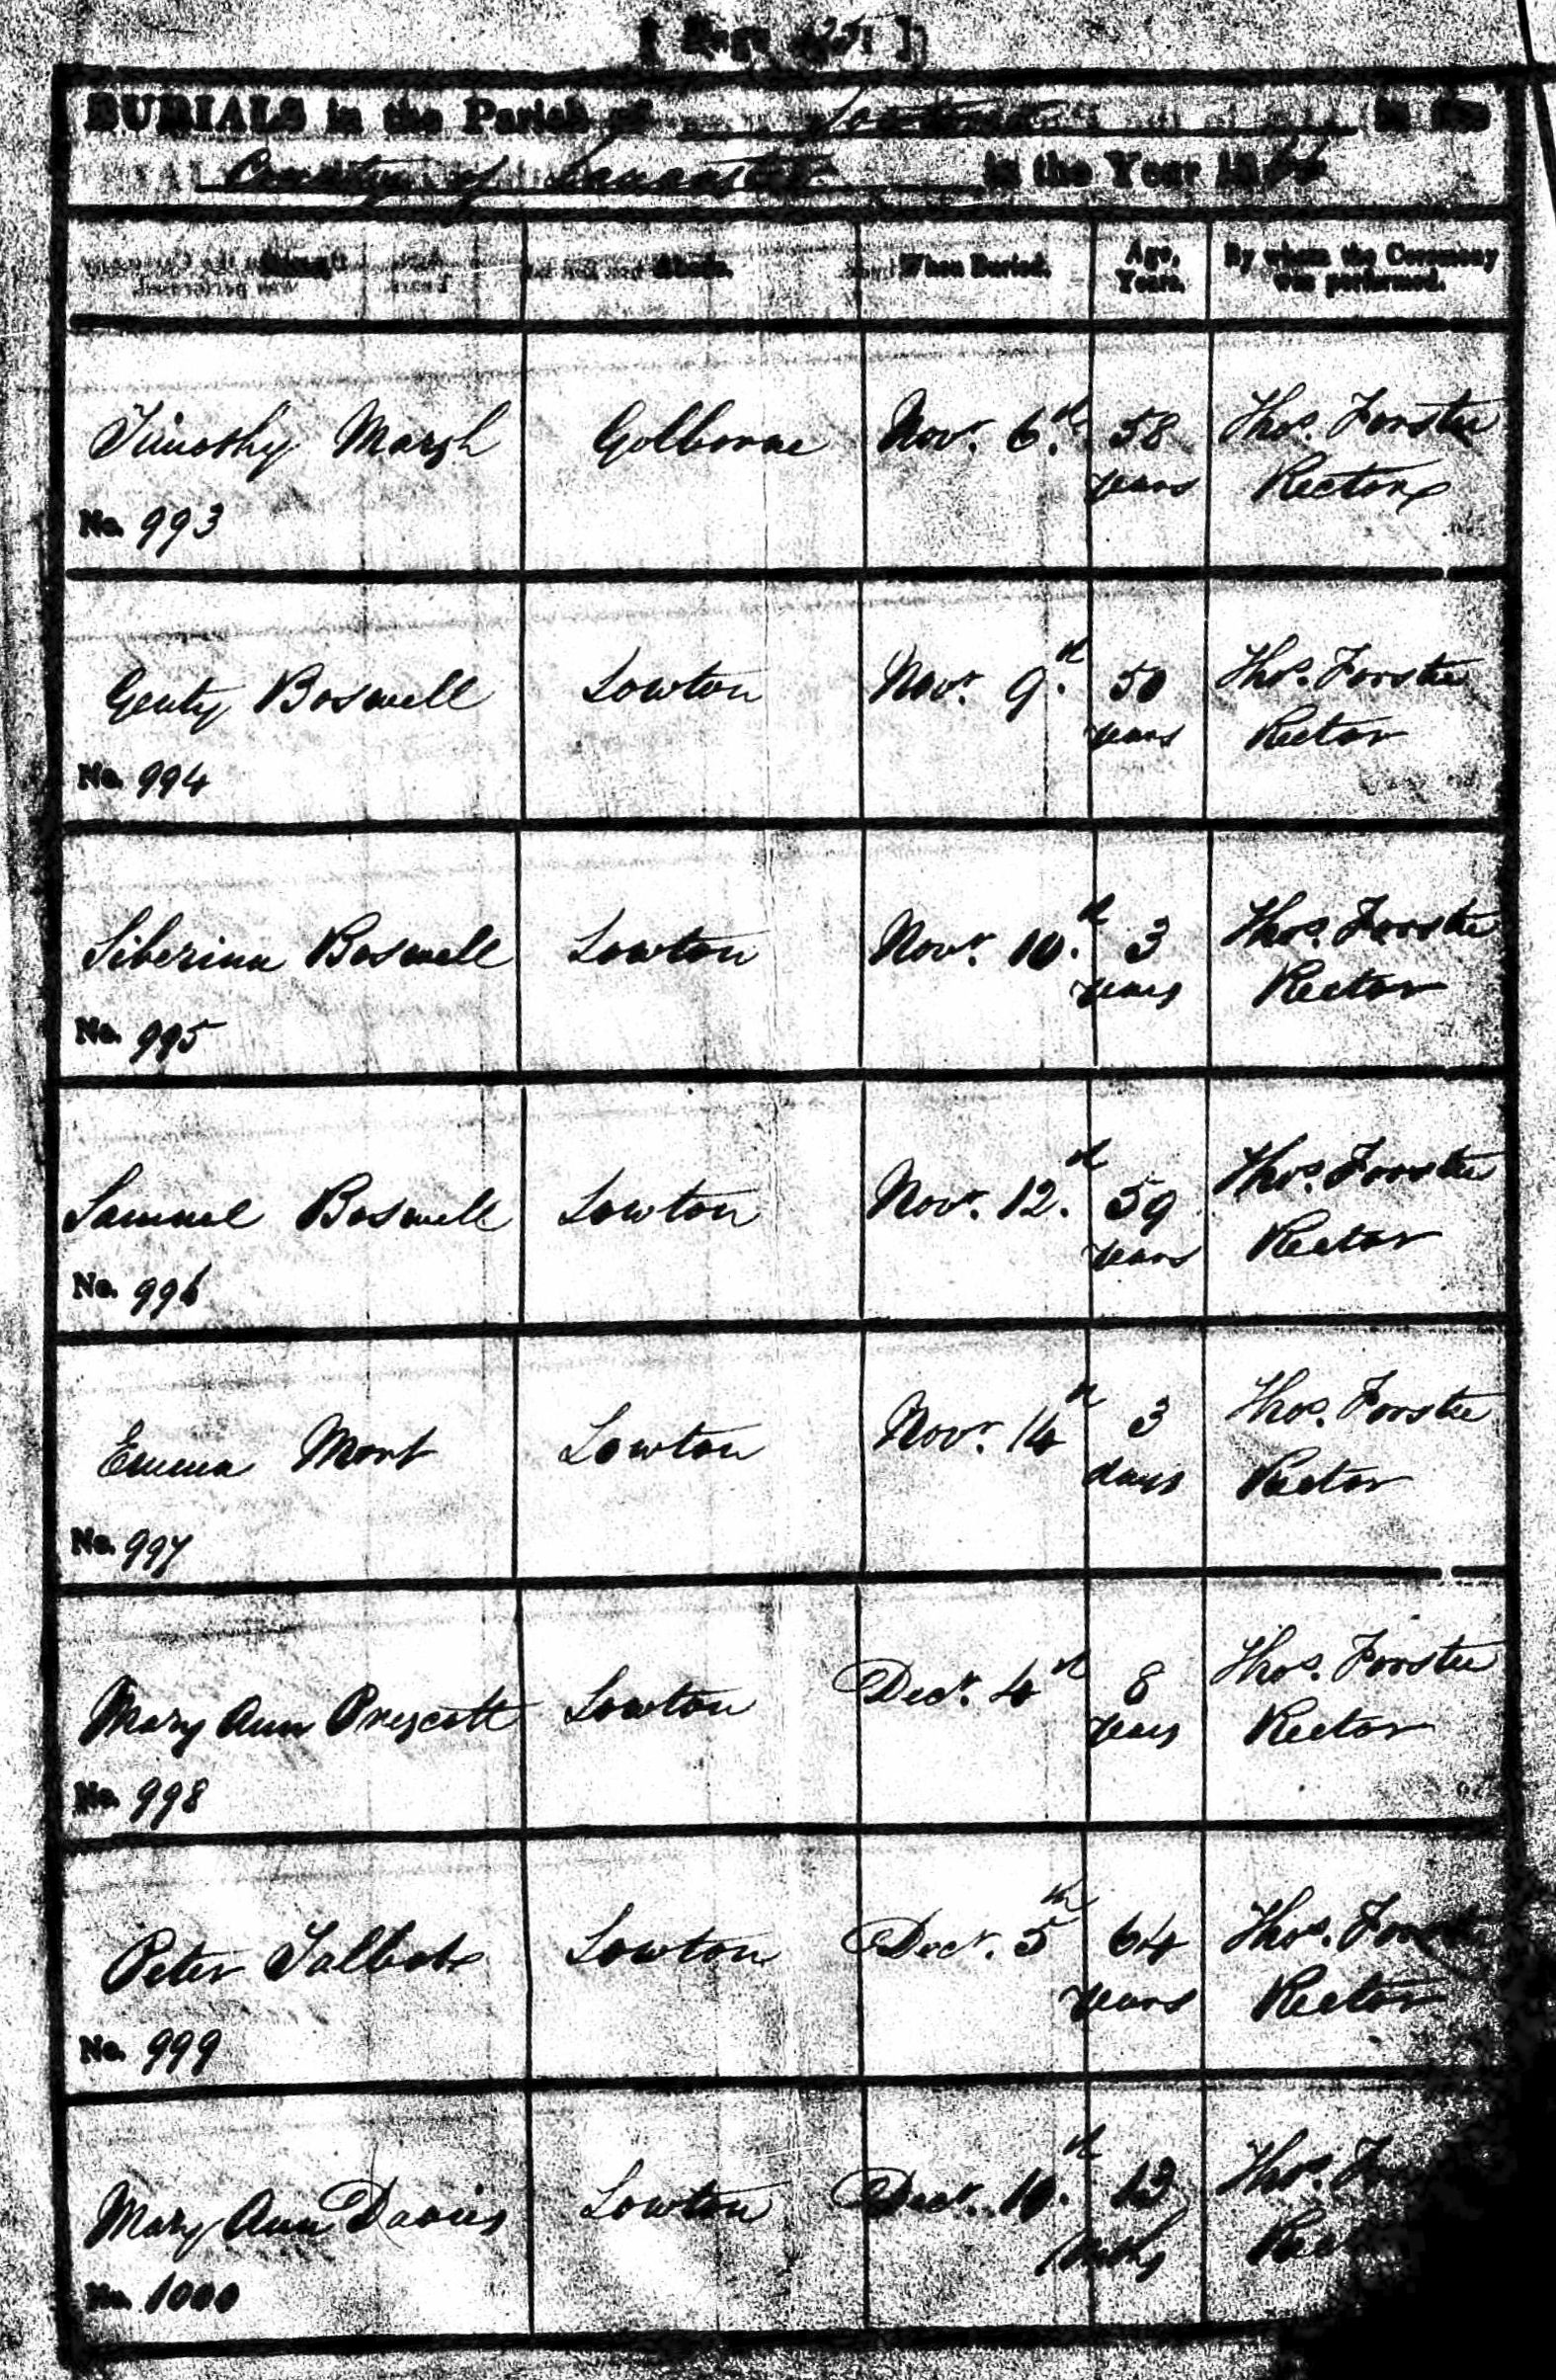 [ Page 125 ]
BURIALS in the Parish of Lowton in the
County of Lancaster in the Year 18
Name. Abode. When Buried. Age, Years. By whom the Ceremony was performed.
Timothy Marsh Golborne Novr. 6th. 58 years Thos. Forster Rector
No. 993
Genty Boswell Lowton Novr. 9th. 50 years Thos. Forster Rector
No. 994
Siberina Boswell Lowton Novr. 10th. 3 years Thos. Forster Rector
No. 995
Samuel Boswell Lowton Novr. 12th. 59 years Thos. Forster Rector
No. 996
Emma Mort Lowton Novr. 14th 3 days Thos. Forster Rector
No. 997
Mary Ann Prescott Lowton Decr. 4th 8 years Thos. Forster Rector
No. 998
Peter Talbot Lowton Decr. 5th 64 years Thos. Forster Rector
No. 999
Mary Ann Davies Lowton Decr. 10th. 13 mths Thos. Fo Rect
No. 1000